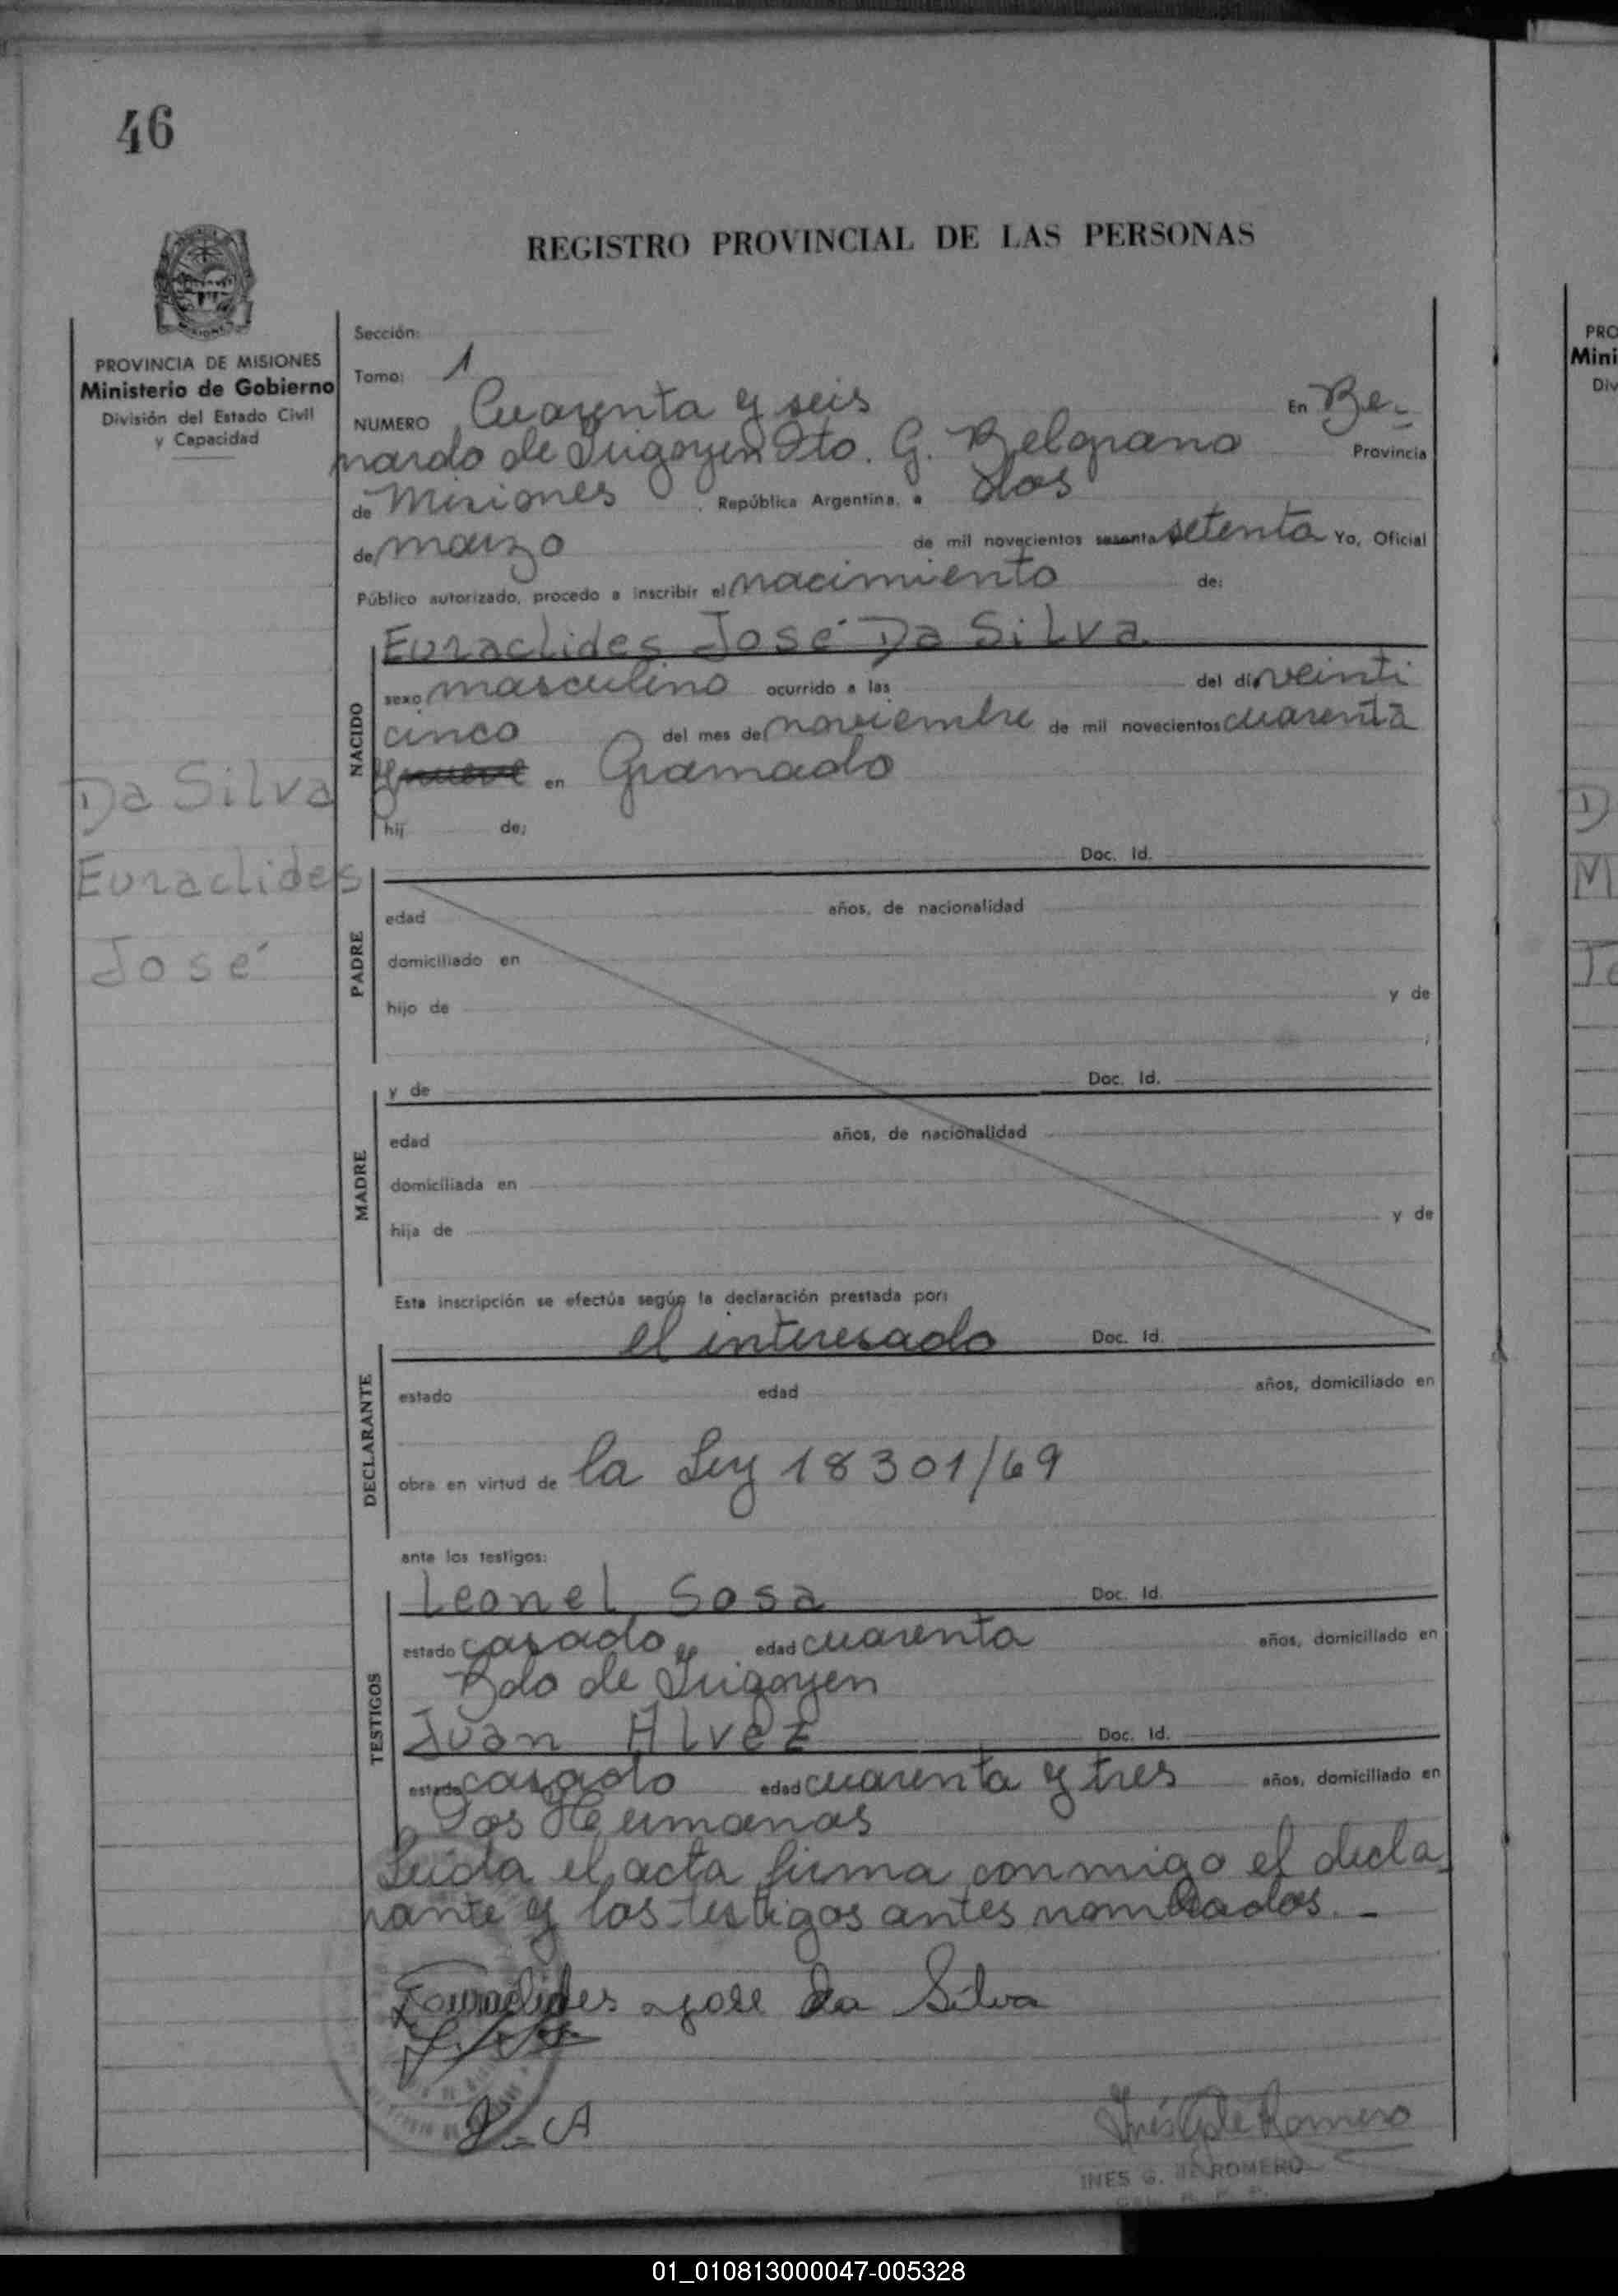 46
REGISTRO PROVINCIAL DE LAS PERSONAS
PROVINCIA DE MISIONES
Ministerio de Gobierno
División del Estado Civil
y Capacidad
Sección:
Tomo: 1
NUMERO Cuarenta y seis En Be-
nardo de Irigoyen Dto. G. Belgrano Provincia
de Misiones, República Argentina, a dos
de marzo de mil novecientos sesenta setenta Yo, Oficial
Público autorizado, procedo a inscribir el nacimiento de:
Euraclides José Da Silva
NACIDO
sexo masculino ocurrido a las del día veinti
cinco del mes de noviembre de mil novecientos cuarenta
y nueve en Gramado
hij de:
Da Silva
Euraclides
José
Doc. Id.
PADRE
edad años, de nacionalidad
domiciliado en
hijo de y de
;
y de Doc. Id.
MADRE
edad años, de nacionalidad
domiciliada en
hija de y de
Esta inscripción se efectúa según la declaración prestada por:
el interesado Doc. Id.
DECLARANTE
estado edad años, domiciliado en
obra en virtud de la Ley 18301/69
ante los testigos:
Leonel Sosa Doc. Id.
TESTIGOS
estado casado edad cuarenta años, domiciliado en
Bdo de Irigoyen
Juan Alvez Doc. Id.
estado casado edad cuarenta y tres años, domiciliado en
Dos Hermanas
Leida el acta firma conmigo el decla-
rante y los testigos antes nombrados.-
Euraclides jose da Silva
J. A
Inés G de Romero
INES G. DE ROMERO
PRO
Mini
Div
D
M
Jo
01_010813000047-005328